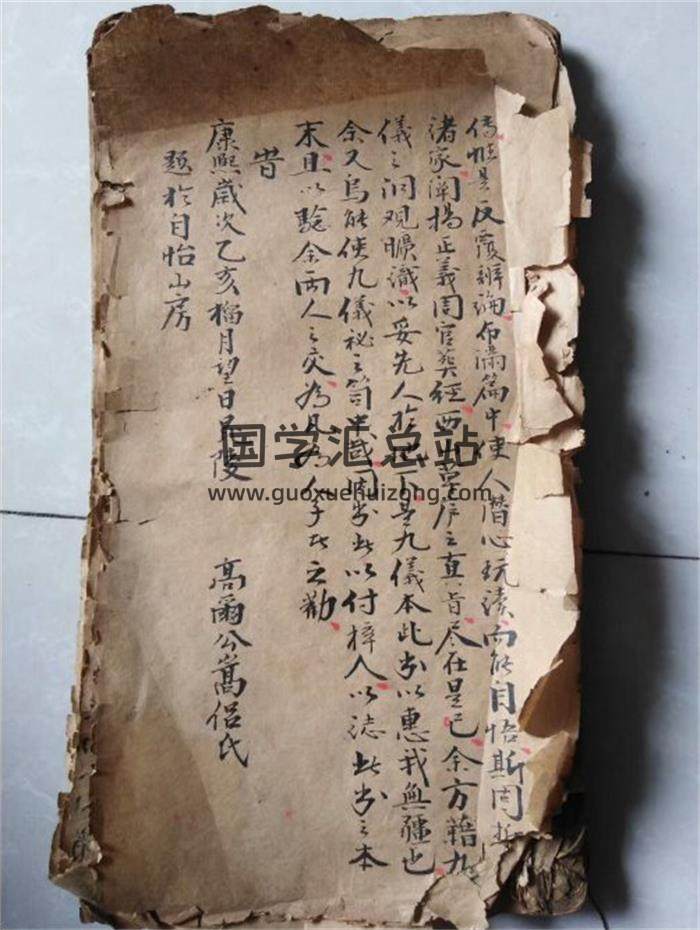 僞惟是反覆辨論布滿篇中使人潛心玩讀而能自悟斯周
諸家闡揚正義周官葬經西山之真旨尽在是已余方藉九
儀之洞觀曠識以妥先人於地下是九儀本此书以惠我無疆也
余又烏能使九儀祕之笥中哉周书此以付梓人以誌此书之本
末且以驗余兩人之交為凡為人子者之勸
旹
康熙歲次乙亥榴月望日毘陵 高爾公嵩侶氏
題於自怡山房
国学汇总站
www.guoxuehuizong.com